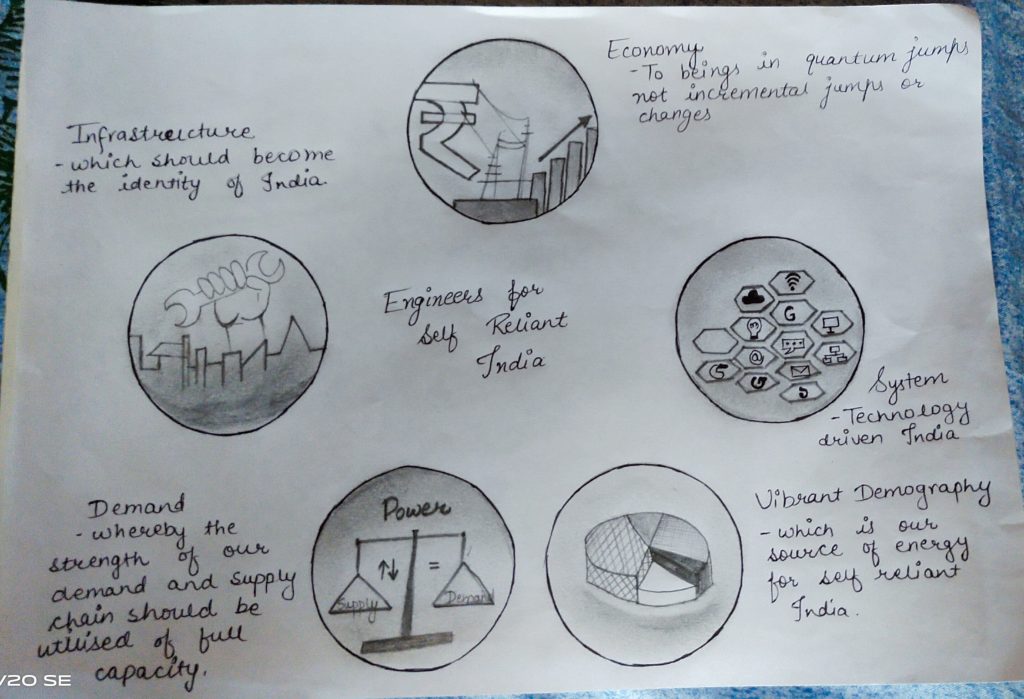 Economy
- To beings in quantum jumps
not incremental jumps or
changes
Infrastructure
- which should become
the identity of India.
Engineers for
Self Reliant
India
G
@
System
- Technology
driven India
Demand
- whereby the
strength of our
demand and supply
chain should be
utilised of full
capacity.
Power
=
Supply
Demand
Vibrant Demography
- which is our
source of energy
for self reliant
India.
/20 SE